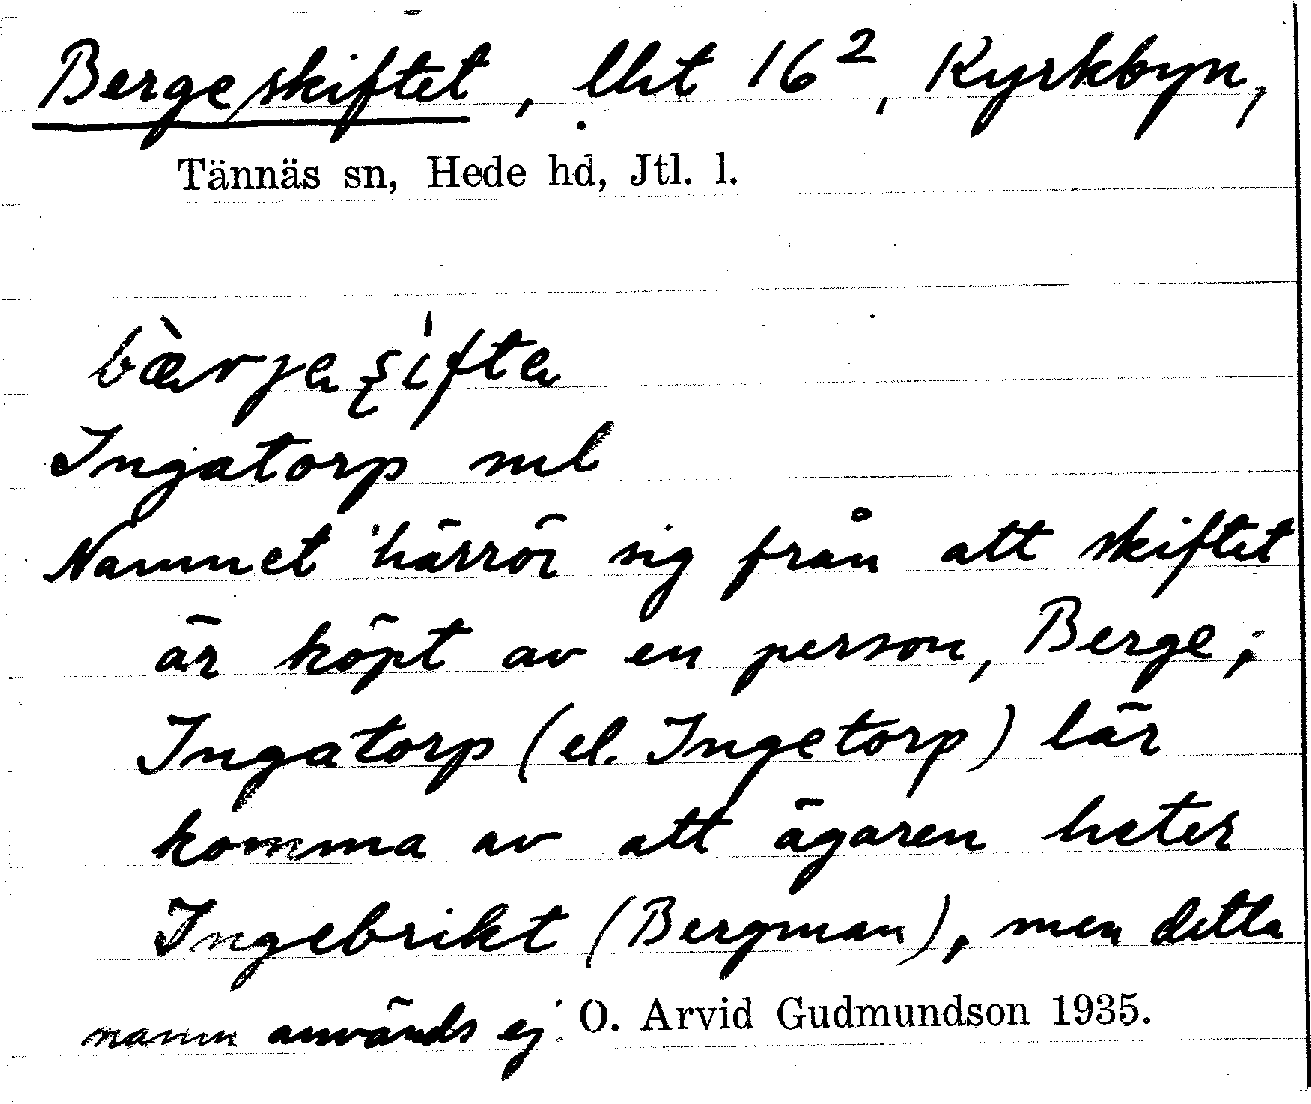 Bergeskiftet, lht 16², Kyrkbyn,
Tännäs sn, Hede hd, Jtl. l.
Ingatorp ml
Namnet härrör sig från att skiftet
är köpt av en person, Berge;
Ingatorp (el. Ingetorp) lär
komma av att ägaren heter
Ingebrikt (Bergman), men detta
namn används ej. O. Arvid Gudmundson 1935.